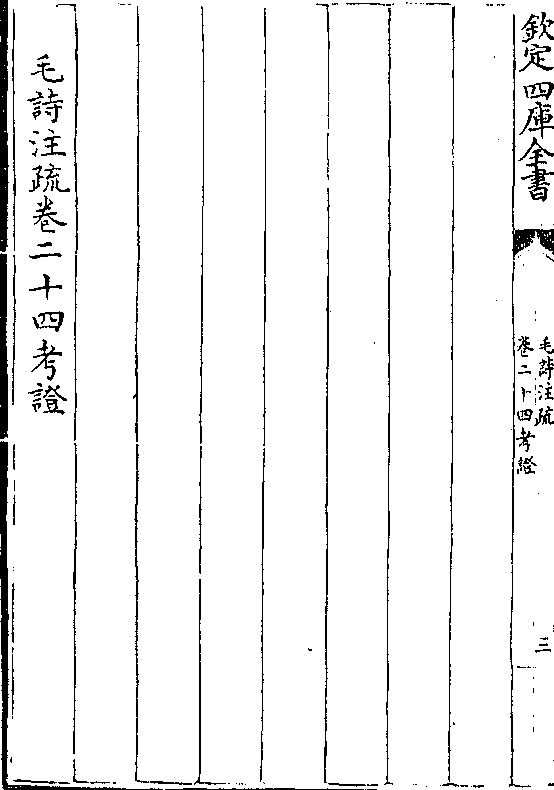 欽定四庫全書
毛詩注疏
卷二十四考證
三
毛詩注疏卷二十四考證